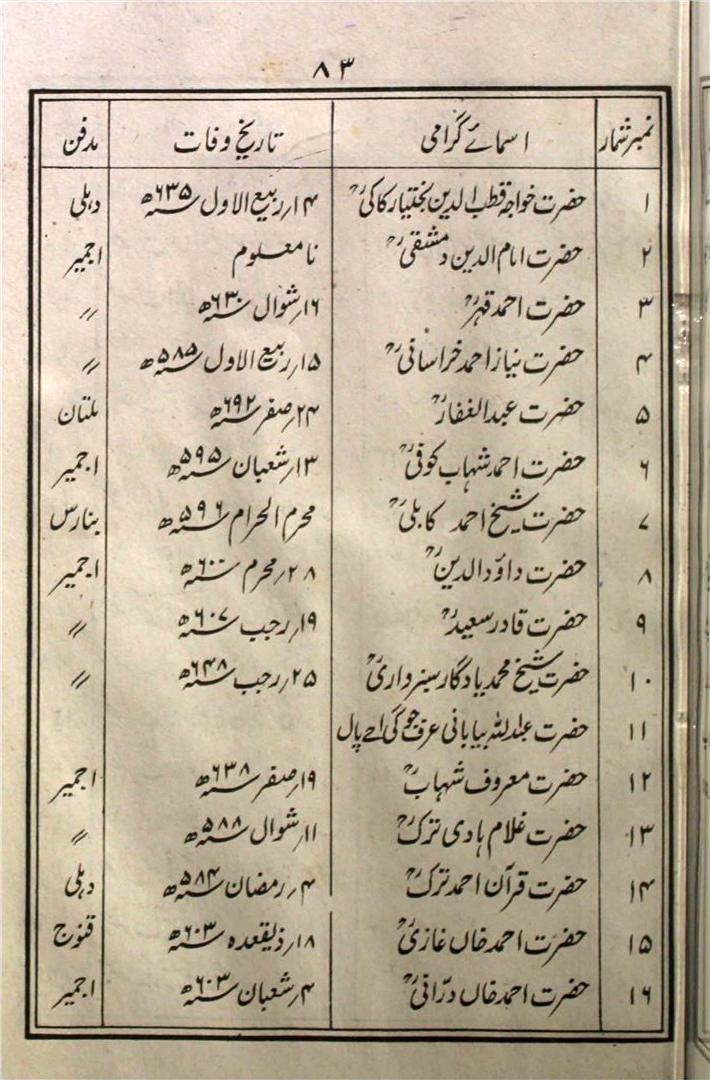 ۸۳
نمبر شمار اسمائے گرامی تاریخ وفات مدفن
۱ حضرت خواجہ قطب الدین بختیار کاکیؒ ۱۴؍ربیع الاول ۶۳۵ھ دہلی
۲ حضرت امام الدین دمشقیؒ نا معلوم اجمیر
۳ حضرت احمد قہرؒ ۱۶؍شوال ۶۳۰ھ 〃
۴ حضرت نیاز احمد خراسانیؒ ۱۵؍ربیع الاول ۵۸۵ھ 〃
۵ حضرت عبدالغفارؒ ۲۴؍صفر ۶۹۲ھ ملتان
۶ حضرت احمد شہاب کوفیؒ ۱۳؍شعبان ۵۹۵ھ اجمیر
۷ حضرت شیخ احمد کابلیؒ محرم الحرام ۵۹۶ھ بنارس
۸ حضرت داؤد الدینؒ ۲۸؍محرم ۶۰۰ھ اجمیر
۹ حضرت قادر سعیدؒ ۱۹؍رجب ۶۰۷ھ 〃
۱۰ حضرت شیخ محمد یادگار سبزواریؒ ۲۵؍رجب ۶۴۸ھ 〃
۱۱ حضرت عبداللہ بیابانی عرف جوگی اجے پال
۱۲ حضرت معروف شہابؒ ۱۹؍صفر ۶۳۸ھ اجمیر
۱۳ حضرت غلام ہادی ترکؒ ۱۱؍شوال ۵۸۸ھ 〃
۱۴ حضرت قرآن احمد ترکؒ ۴؍رمضان ۵۸۴ھ دہلی
۱۵ حضرت احمد خاں غازیؒ ۱۸؍ذیقعدہ ۶۰۳ھ قنوج
۱۶ حضرت احمد خاں درّانیؒ ۴؍شعبان ۶۰۳ھ اجمیر